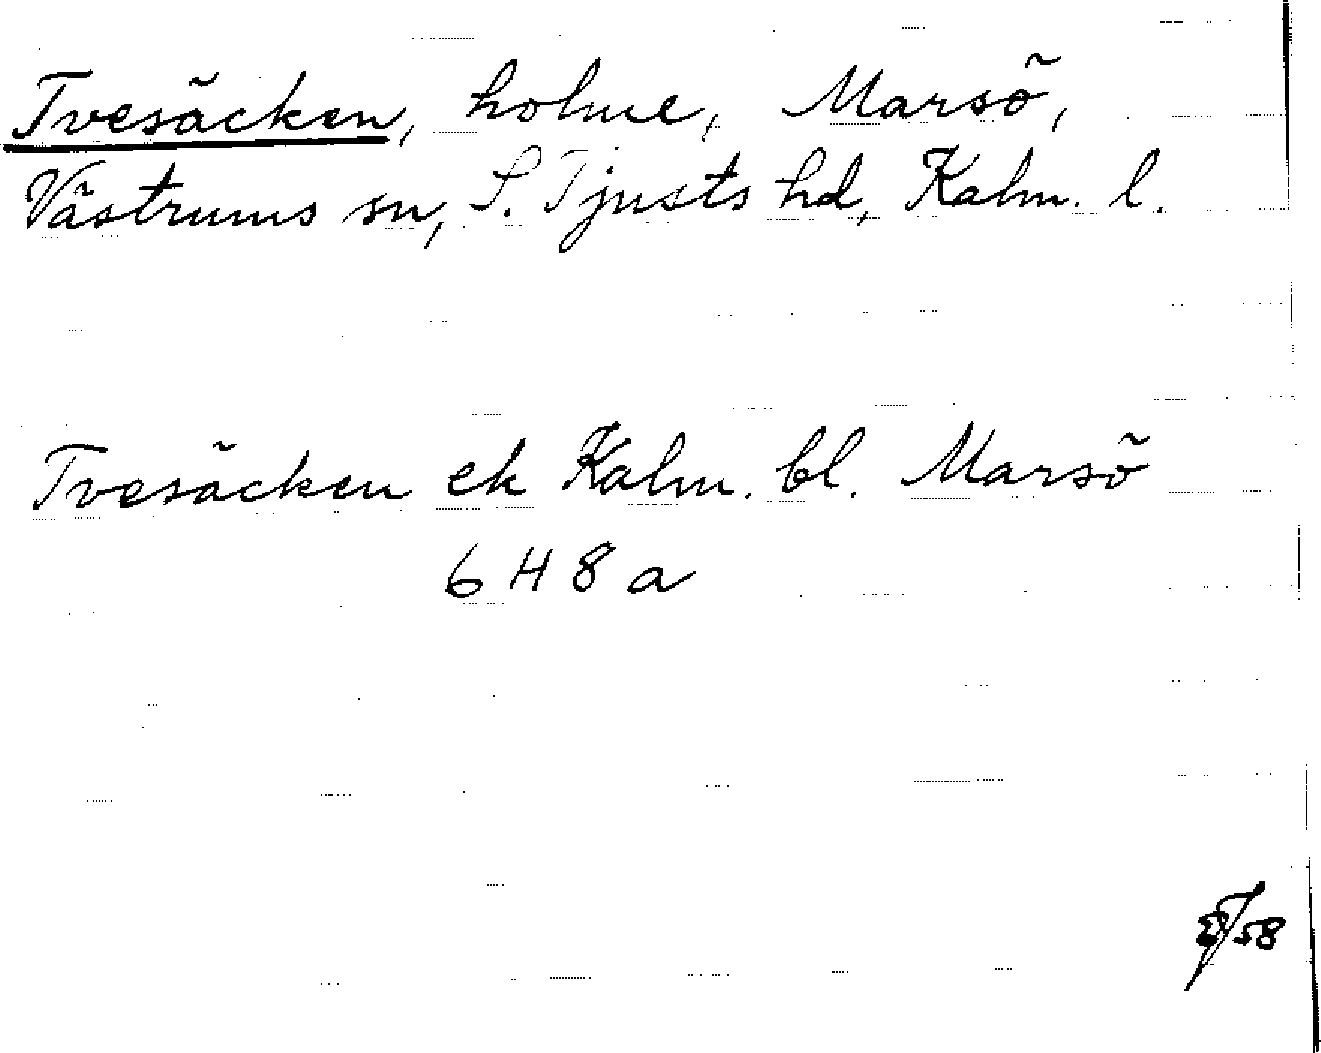 Tvesäcken, holme, Marsö,
Västrums sn, S. Tjusts hd, Kalm. l.
Tvesäcken ek Kalm. bl. Marsö
6 H 8 a
/58